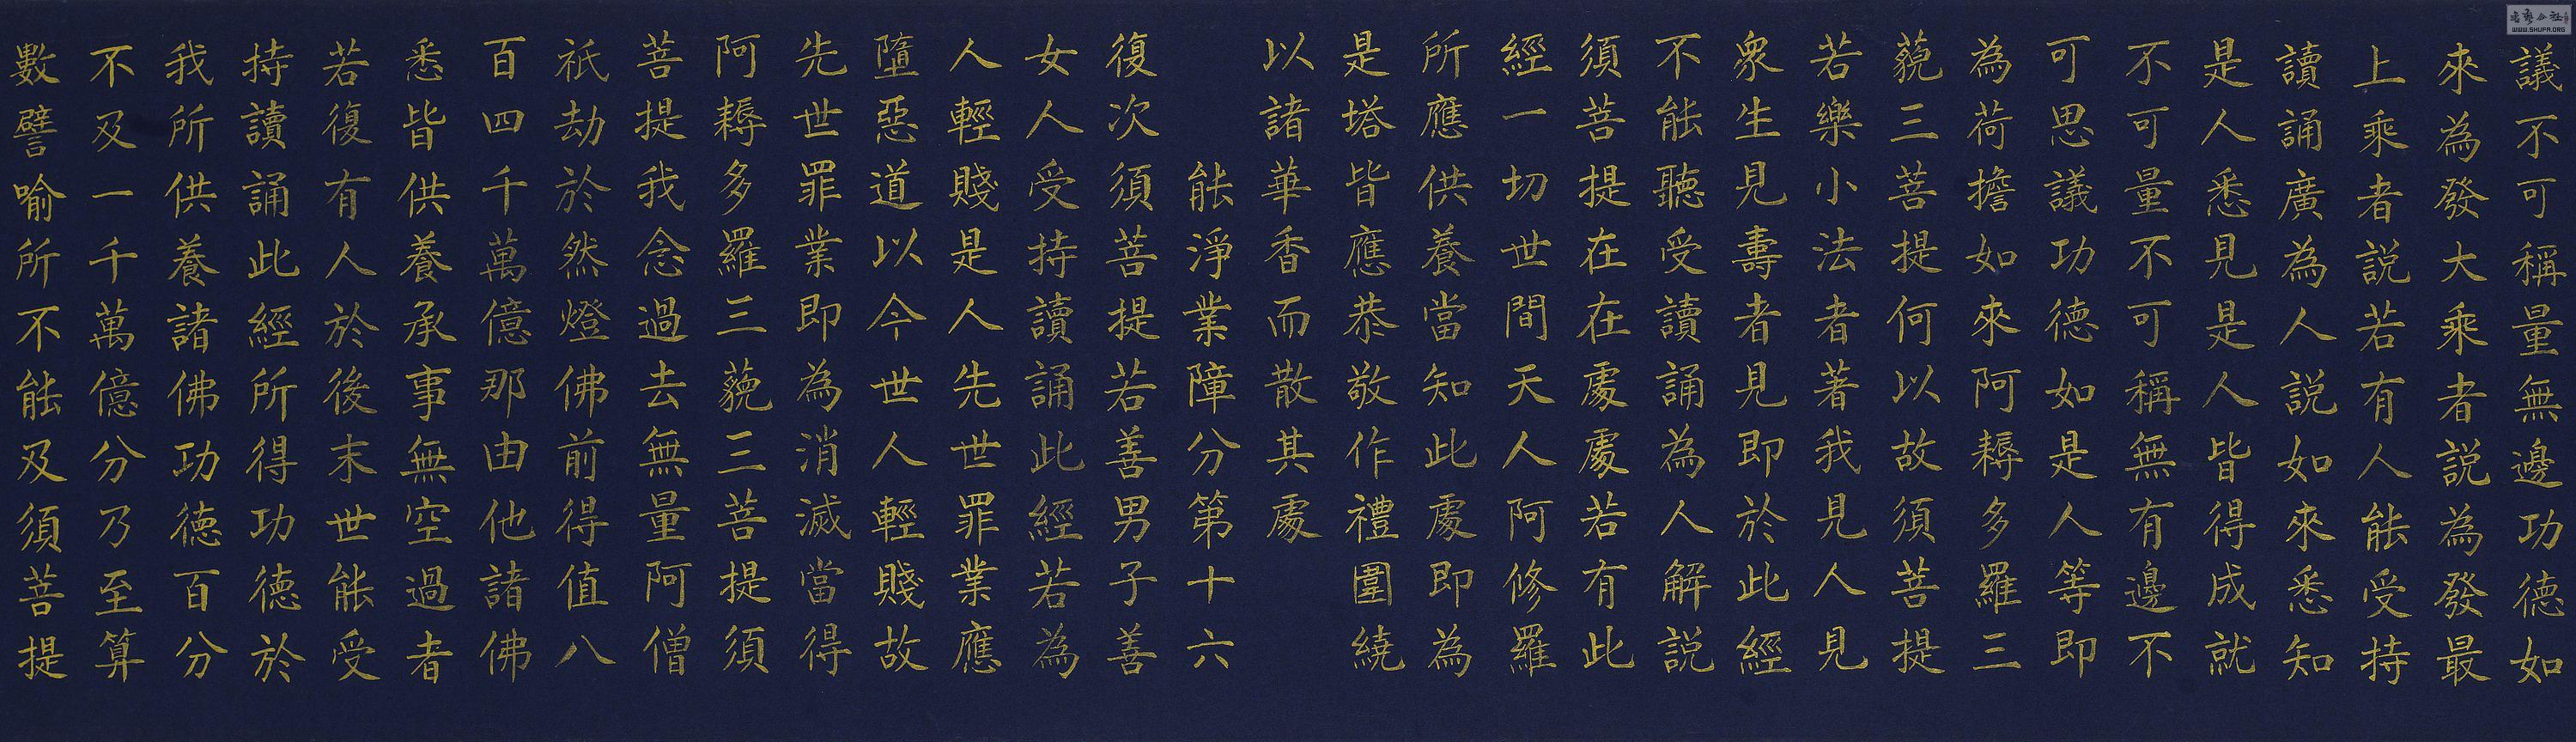 議不可稱量無邊功德如
來為發大乘者說為發最
上乘者說若有人能受持
讀誦廣為人說如來悉知
是人悉見是人皆得成就
不可量不可稱無有邊不
可思議功德如是人等即
為荷擔如來阿耨多羅三
藐三菩提何以故須菩提
若樂小法者著我見人見
衆生見壽者見即於此經
不能聽受讀誦為人解說
須菩提在在處處若有此
經一切世間天人阿修羅
所應供養當知此處即為
是塔皆應恭敬作禮圍繞
以諸華香而散其處
能淨業障分第十六
復次須菩提若善男子善
女人受持讀誦此經若為
人輕賤是人先世罪業應
墮惡道以今世人輕賤故
先世罪業即為消滅當得
阿耨多羅三藐三菩提須
菩提我念過去無量阿僧
祇劫於然燈佛前得值八
百四千萬億那由他諸佛
悉皆供養承事無空過者
若復有人於後末世能受
持讀誦此經所得功德於
我所供養諸佛功德百分
不及一千萬億分乃至算
數譬喻所不能及須菩提
WWW.SHUFA.ORG